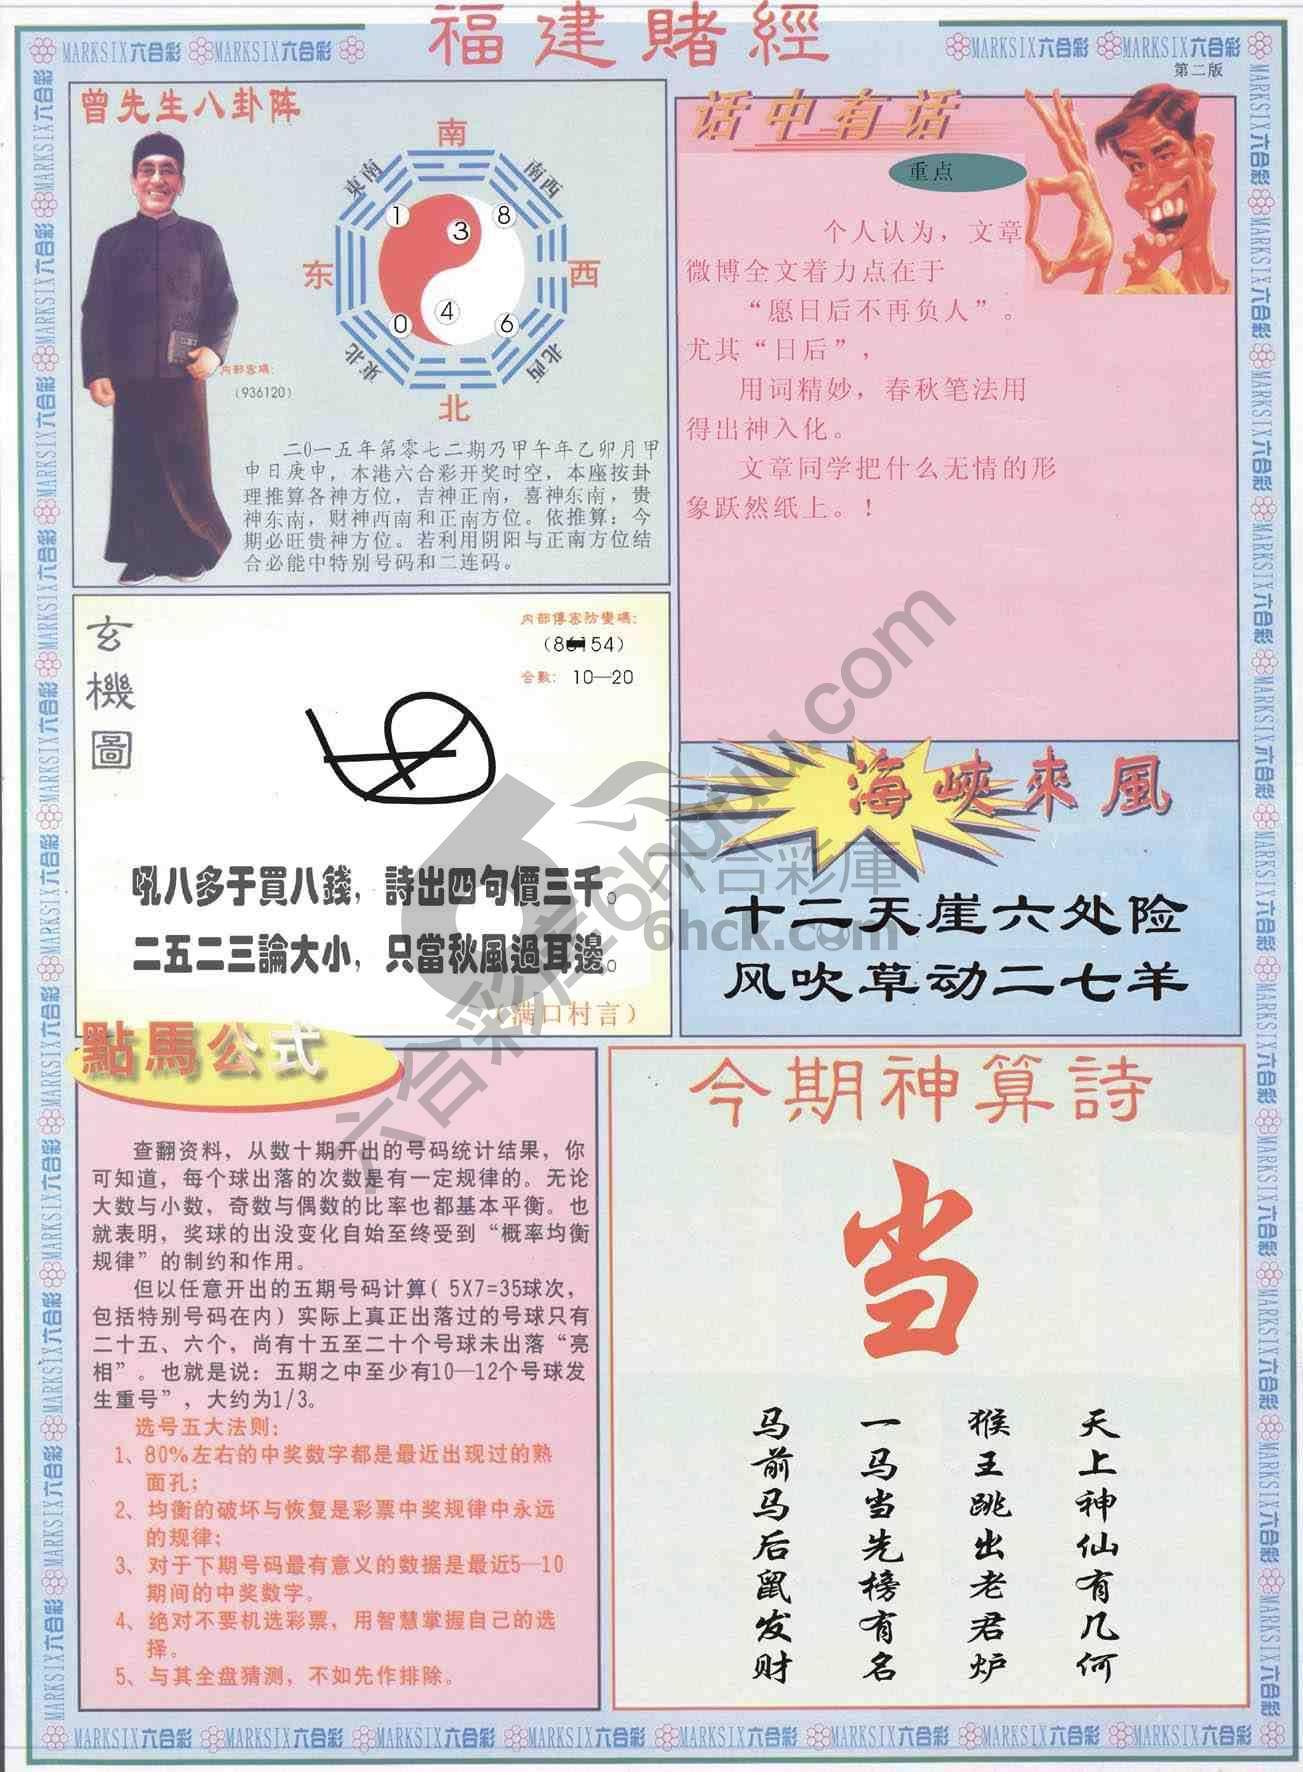 福建賭經
MARKSIX六合彩 MARKSIX六合彩
MARKSIX六合彩 MARKSIX六合彩
第二版
曾先生八卦阵
南
東南
南西
1
3
8
东
西
0
4
6
東北
北西
北
内部密碼:
(936120)
二0一五年第零七二期乃甲午年乙卯月甲
申日庚申，本港六合彩开奖时空，本座按卦
理推算各神方位，吉神正南，喜神东南，贵
神东南，财神西南和正南方位。依推算：今
期必旺贵神方位。若利用阴阳与正南方位结
合必能中特别号码和二连码。
话中有话
重点
个人认为，文章
微博全文着力点在于
“愿日后不再负人”。
尤其“日后”，
用词精妙，春秋笔法用
得出神入化。
文章同学把什么无情的形
象跃然纸上。！
玄機圖
内部傳密防變碼:
154)
合數: 10—20
吼八多于買八錢，詩出四句價三千。
二五二三論大小，只當秋風過耳邊。
（满口村言）
海峽來風
十二天崖六处险
风吹草动二七羊
點馬公式
查翻资料，从数十期开出的号码统计结果，你
可知道，每个球出落的次数是有一定规律的。无论
大数与小数，奇数与偶数的比率也都基本平衡。也
就表明，奖球的出没变化自始至终受到“概率均衡
规律”的制约和作用。
但以任意开出的五期号码计算( 5X7=35球次，
包括特别号码在内）实际上真正出落过的号球只有
二十五、六个，尚有十五至二十个号球未出落“亮
相”。也就是说：五期之中至少有10—12个号球发
生重号”，大约为1/3。
选号五大法则:
1、80%左右的中奖数字都是最近出现过的熟
面孔；
2、均衡的破坏与恢复是彩票中奖规律中永远
的规律；
3、对于下期号码最有意义的数据是最近5—10
期间的中奖数字。
4、绝对不要机选彩票，用智慧掌握自己的选
择。
5、与其全盘猜测，不如先作排除。
今期神算詩
当
天上神仙有几何
猴王跳出老君炉
一马当先榜有名
马前马后鼠发财
六合彩庫
6hck.com
MARKSIX六合彩 MARKSIX六合彩 MARKSIX六合彩 MARKSIX六合彩 MARKSIX六合彩 MARKSIX六合彩 MARKSIX六合彩 MARKSIX六合彩